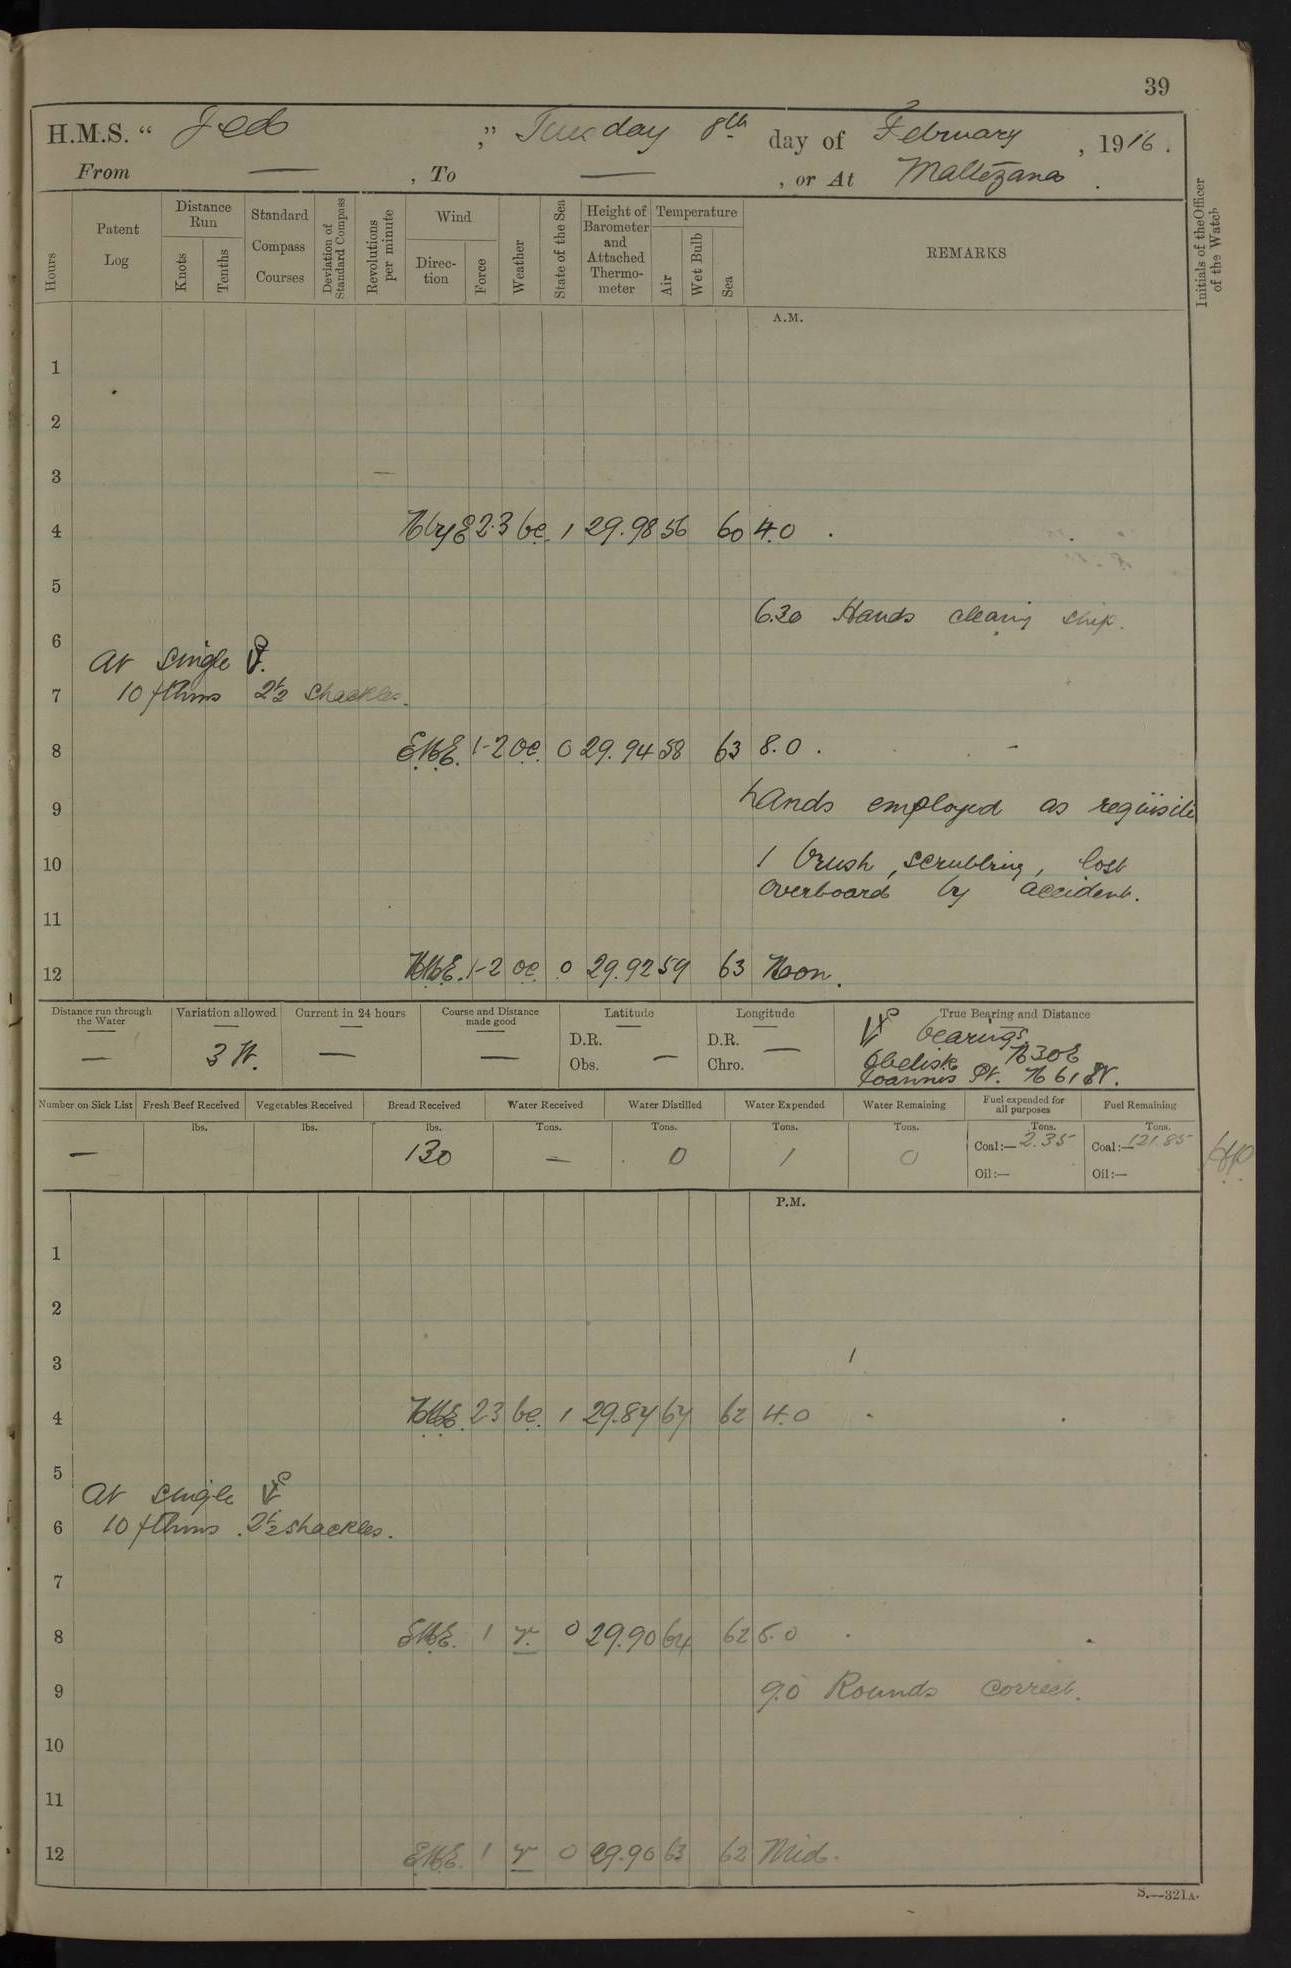 39
H.M.S. “ Jed ,” Tuesday 8th day of February , 1916 .
From — , To — , or At Maltezana .
Hours
Patent Log
Distance Run
Knots
Tenths
Standard Compass Courses
Deviation of Standard Compass
Revolutions per minute
Wind
Direction
Force
Weather
State of the Sea
Height of Barometer and Attached Thermometer
Temperature
Air
Wet Bulb
Sea
REMARKS
Initials of the Officer of the Watch
A.M.
1
2
3
4 NbyE 2.3 bc. 1 29.98 56 60 4.0 .
5
6.30 Hands cleaning ship.
6
At single
7 10 fthms 2½ shackles.
8 E.N.E. 1-2 oc. 0 29.94 58 63 8.0 .
9 hands employed as requisite
10 1 brush, scrubbing, lost
overboard by accident.
11
12 N.N.E. 1-2 oc 0 29.92 59 63 Noon.
Distance run through the Water —
Variation allowed 3 W.
Current in 24 hours —
Course and Distance made good —
Latitude D.R. Obs. —
Longitude D.R. Chro. —
True Bearing and Distance
bearings
Obelisk N30E
Joannis Pt. N 61 W.
Number on Sick List —
Fresh Beef Received lbs.
Vegetables Received lbs.
Bread Received lbs. 130
Water Received Tons. —
Water Distilled Tons. 0
Water Expended Tons. 1
Water Remaining Tons. 0
Fuel expended for all purposes Tons. Coal:— 2.35 Oil:—
Fuel Remaining Tons. Coal:— 121.85 Oil:—
P.M.
1
2
3
4 N.N.E. 2.3 bc. 1 29.84 64 62 4.0
5
At single
6 10 fthms . 2½ shackles.
7
8 E.N.E. 1 r. 0 29.90 64 62 8.0
9 9.0 Rounds correct.
10
11
12 E.N.E. 1 r 0 29.90 63 62 Mid.
S.—321A.